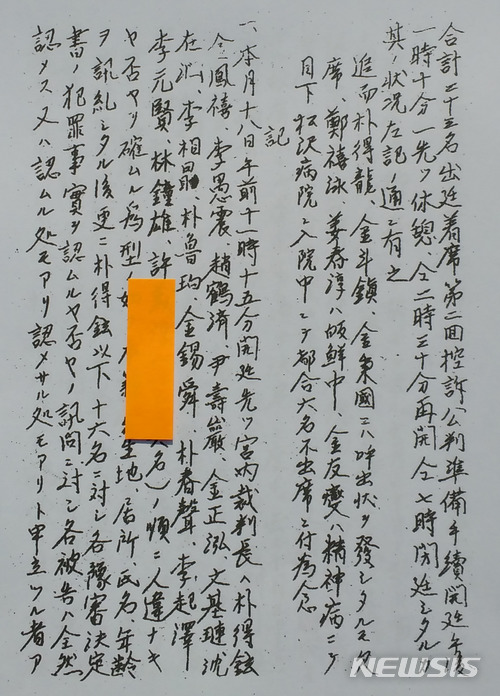 合計二十三名出廷着席第二回控訴公判準備手續開廷午後
一時十分一先ツ休憩、仝二時三十分再開仝七時閉廷シタルカ
其ノ状况左記ノ通ニ有之
追而朴得龍、金斗鎮、金東國ニハ呼出状ヲ發シタルモ欠
席、鄭禧泳、姜春淳ハ皈鮮中、金友燮ハ精神病ニテ
目下松沢病院ニ入院中ニテ都合六名不出席ニ付為念
記
一、本月十八日午前十一時十五分開廷先ツ宮内裁判長ハ朴得鉉
仝鳳禧 李愚震 趙鶴済 尹壽巌 金正泓 文基璉 沈
在 李相 朴魯均 金錫舜 朴春聲 李起澤
李元賢、林鐘雄、許 名)ノ順ニ人違ナキ
ヤ否ヤヲ確ムル為型ノ如 生地、居所、氏名、年齡
ヲ訊糺シタル後更ニ朴得鉉以下十六名ニ対シ各豫審決定
書ノ犯罪事實ヲ認ムルヤ否ヤノ訊問ニ対シ各被告ハ全然
認メス又ハ認ムル処モアリ認メサル処モアリト申立ツル者ア
NEWSIS